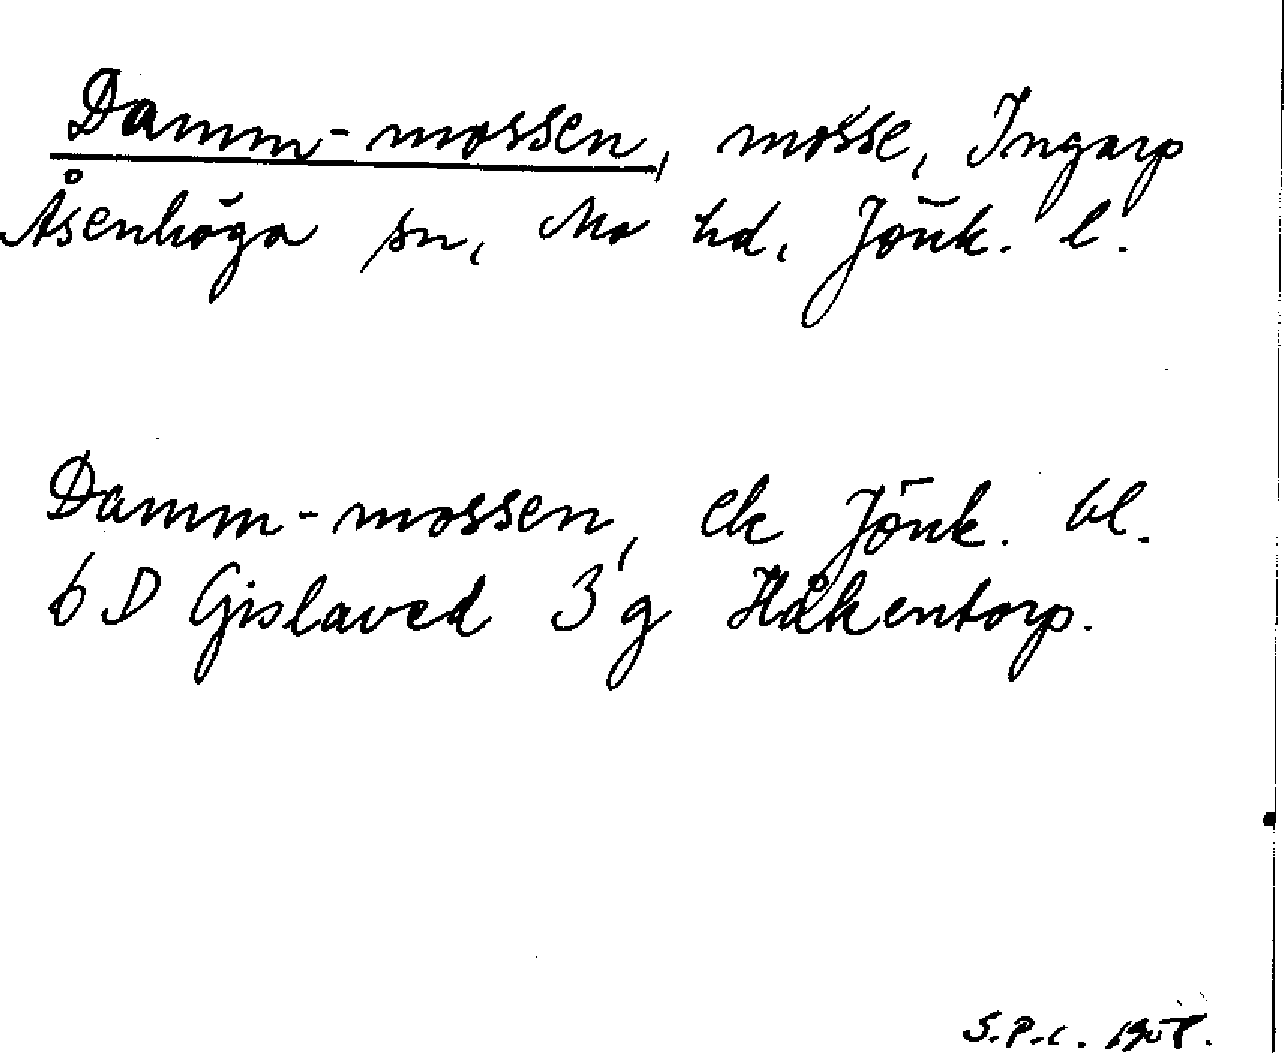 Damm-mossen, mosse, Ingarp
Åsenhöga sn, Mo hd, Jönk. l.
Damm-mossen, ek Jönk. bl.
6 D Gislaved 3 g Håkentorp.
S.P.C.